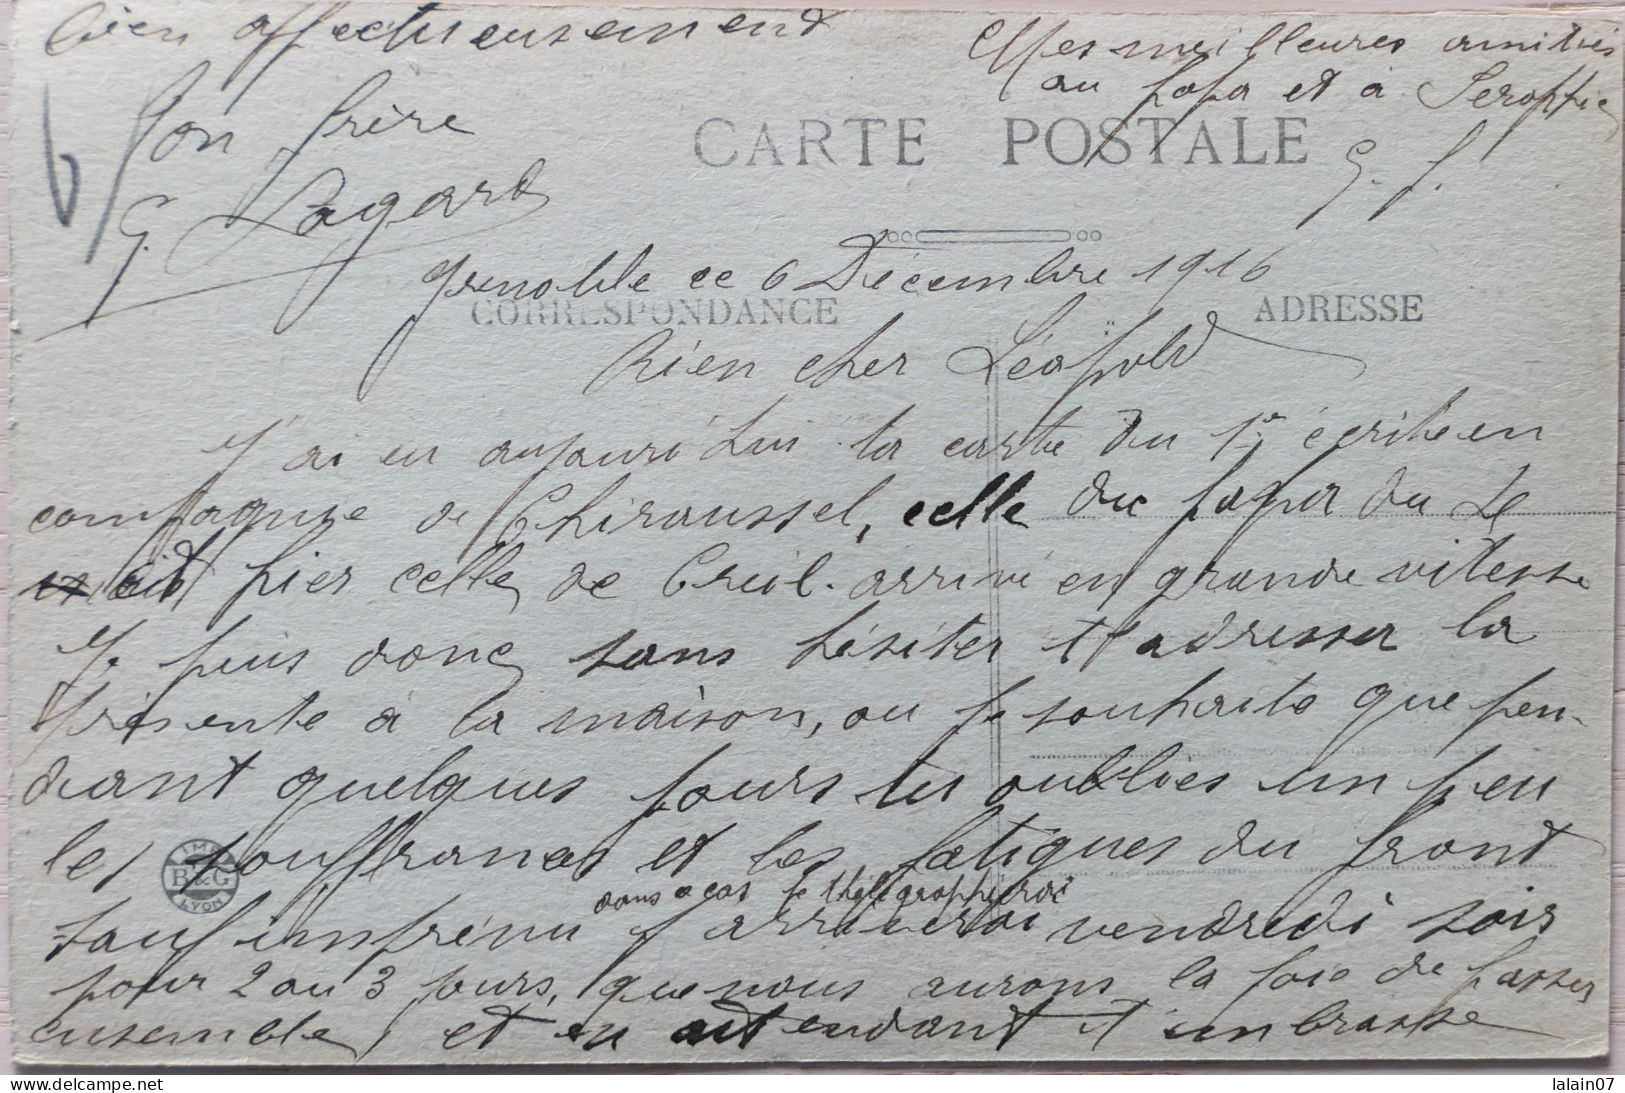 bien affectueusement
Mes meilleures amitiés
au papa et à Seraphie
Ton frère
CARTE POSTALE
G. L.
G. Lagard
Grenoble ce 6 Décembre 1916
CORRESPONDANCE
ADRESSE
Bien cher Léopold
J'ai eu aujourd'hui ta carte du 1er écrite en
compagnie de Chiroussel, celle du papa du Le
et hier celle de Creil. arrivé en grande vitesse
Je puis donc sans hésiter t'adresser la
présente à la maison, ou je souhaite que pen-
dant quelques jours tu oublies un peu
les souffrances et les fatigues du front
dans ce cas je thélégraphierai
sauf imprénu j'arriverai vendredi soir
pour 2 ou 3 jours, que nous aurons la joie de passer
ensemble, et en attendant t'embrasse
IMP.
B & G
LYON
lalain07